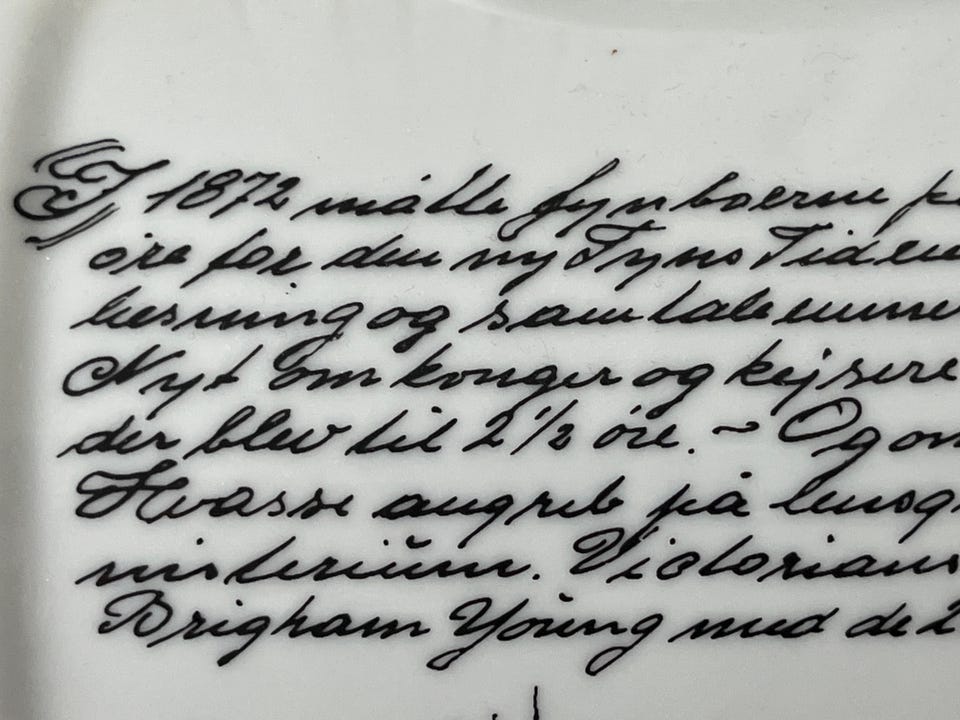 I 1872 måtte fynboerne p
øre for den ny Fyns Tiden
læsning og samtaleemne
Nyt om konger og kejsere
der blev til 2 1/2 øre. ~ Og om
Hvasse angreb på lensg
nisterium. Victorians
Brigham Young med de 2